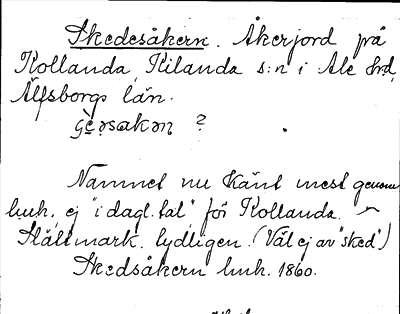 Skedesåkern. Åkerjord på
Kollanda, Kilanda s:n i Ale hrd,
Älfsborgs län.
?
Namnet nu känt mest genom
lmh, ej "i dagl. tal" för Kollanda. –
Slättmark. tydligen. (Väl ej av "sked")
Skedsåkern lmh. 1860.